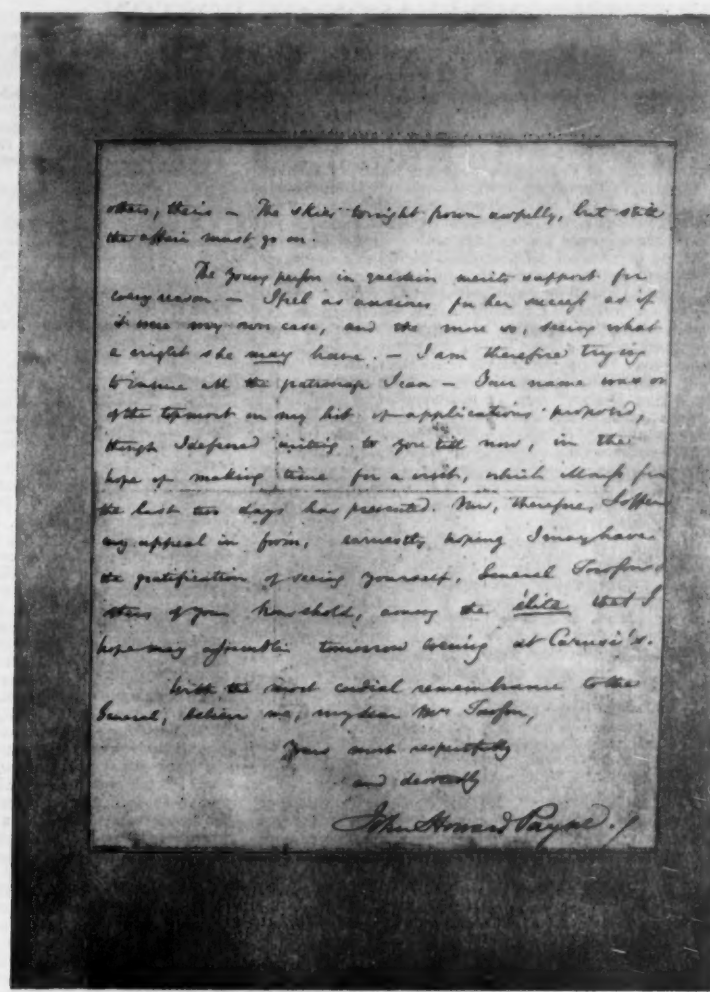 others, theirs – The skies tonight frown awfully, but still
the affair must go on.
The young person in question merits support for
every reason – I feel as anxious for her success as if
it were my own case, and the more so, seeing what
a might she may have. – I am therefore trying
to insure all the patronage I can – Your name was on
of the topmost in my list of applications proposed,
though I deferred writing to you till now, in the
hope of making time for a visit, which illness for
the last two days has prevented. Now, therefore, I offer
my appeal in form, earnestly hoping I may have
the gratification of seeing yourself, General
of your household, among the élite that I
hope may assemble tomorrow evening at Carusi's.
With the most cordial remembrance to the
General, believe me, my dear Mrs
Yours most respectfully
and devotedly
John Howard Payne.